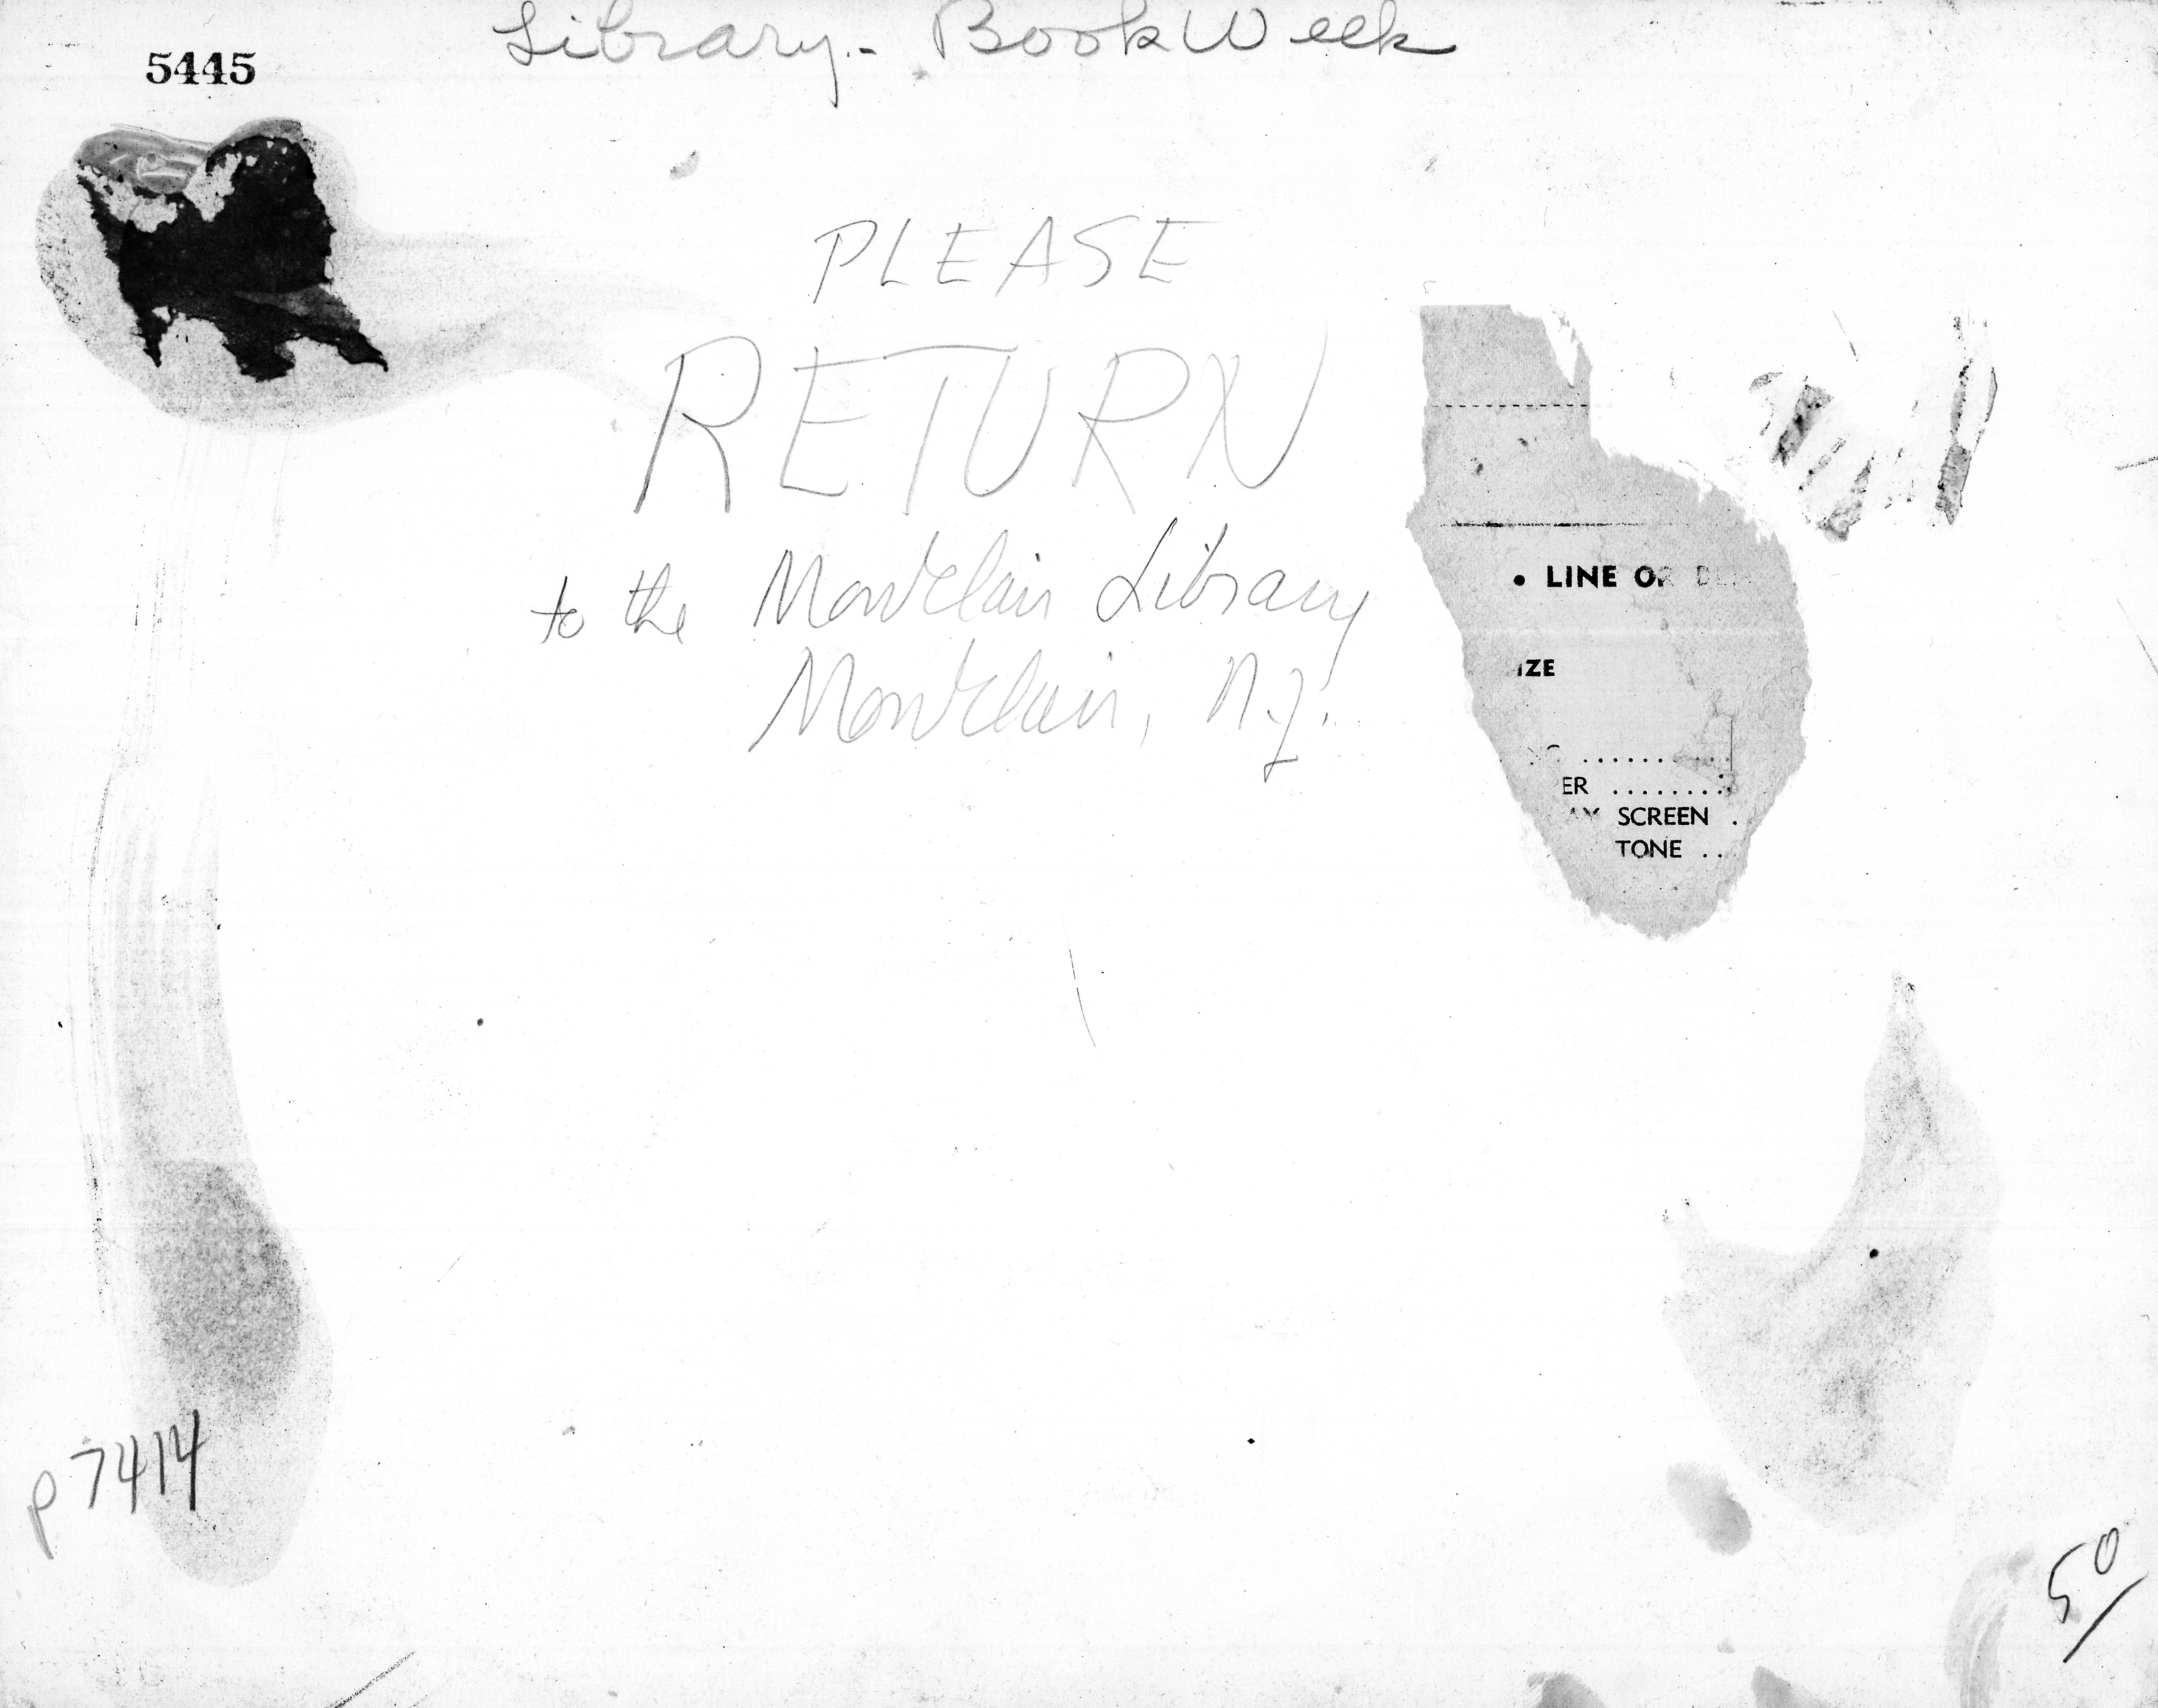 Library - Book Week
5445
PLEASE
RETURN
to the Montclair Library
Montclair, N.J.
• LINE OR
IZE
ER ........
SCREEN .
TONE ..
p7414
50